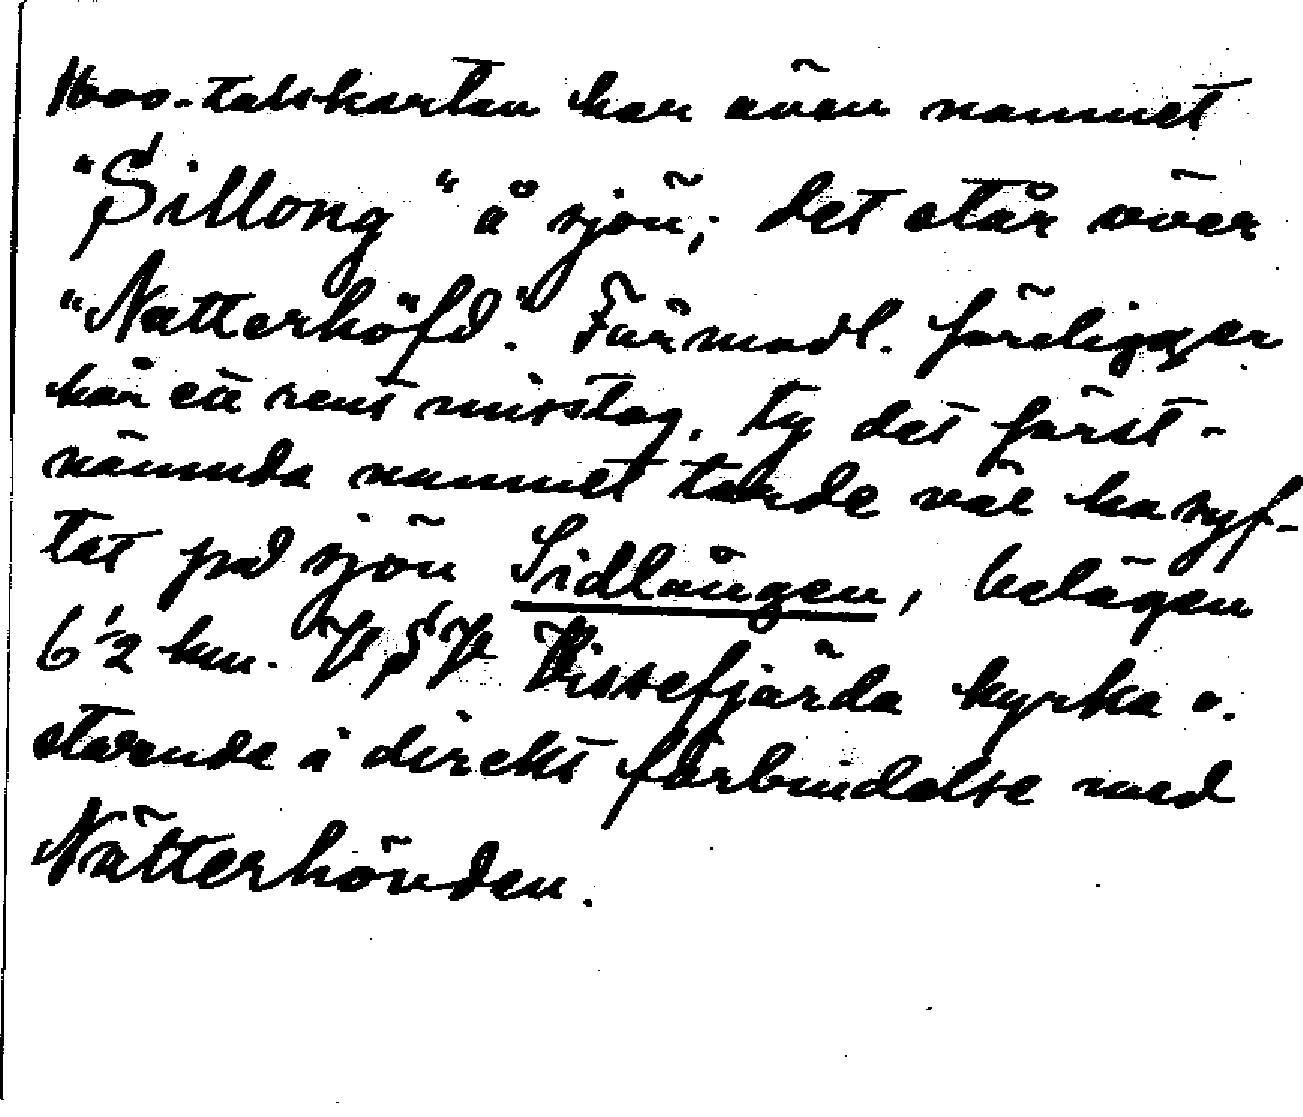 1600-talskartan har även namnet
"Sillong" å sjön; det står över
"Natterhöfd". Förmodl. föreligger
här ett rent misstag, ty det först-
nämnda namnet torde väl ha syf-
tat på sjön Sidlången, belägen
6 1/2 km. VSV Vissefjärda kyrka o.
stående i direkt förbindelse med
Nätterhövden.